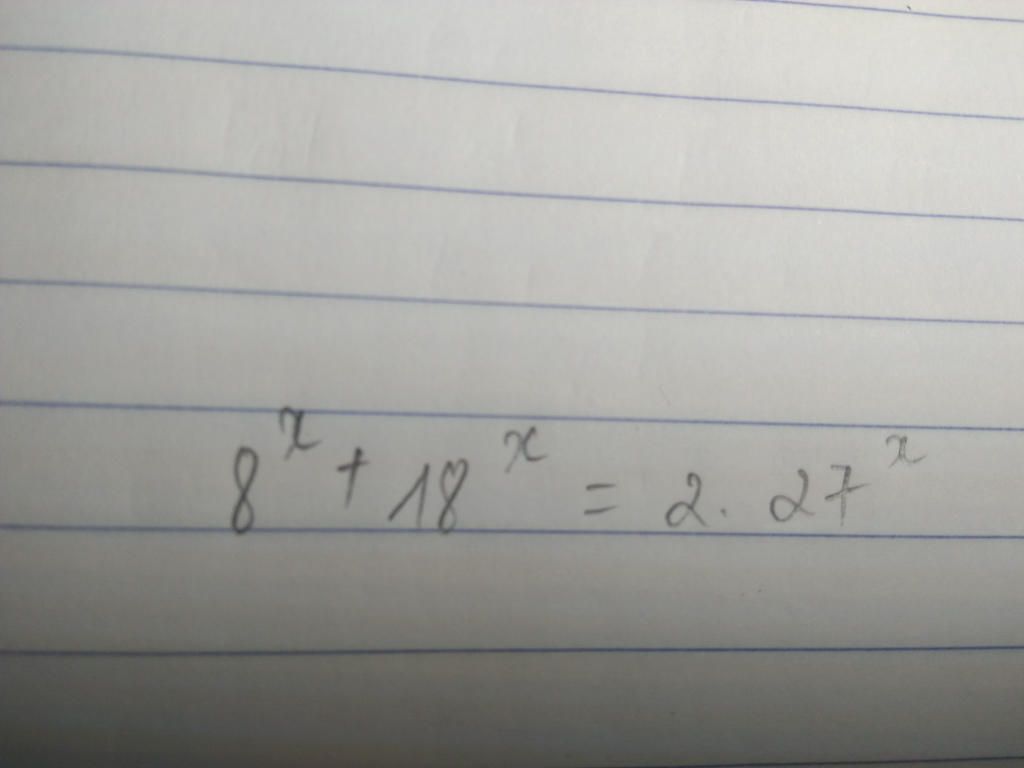 8^x + 18^x = 2. 27^x